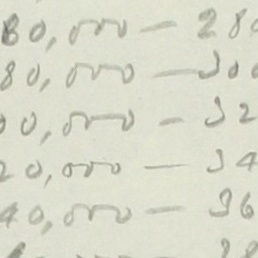 60,000 — 280
80,000 — 300
00,000 — 32
20,000 — 34
40,000 — 36